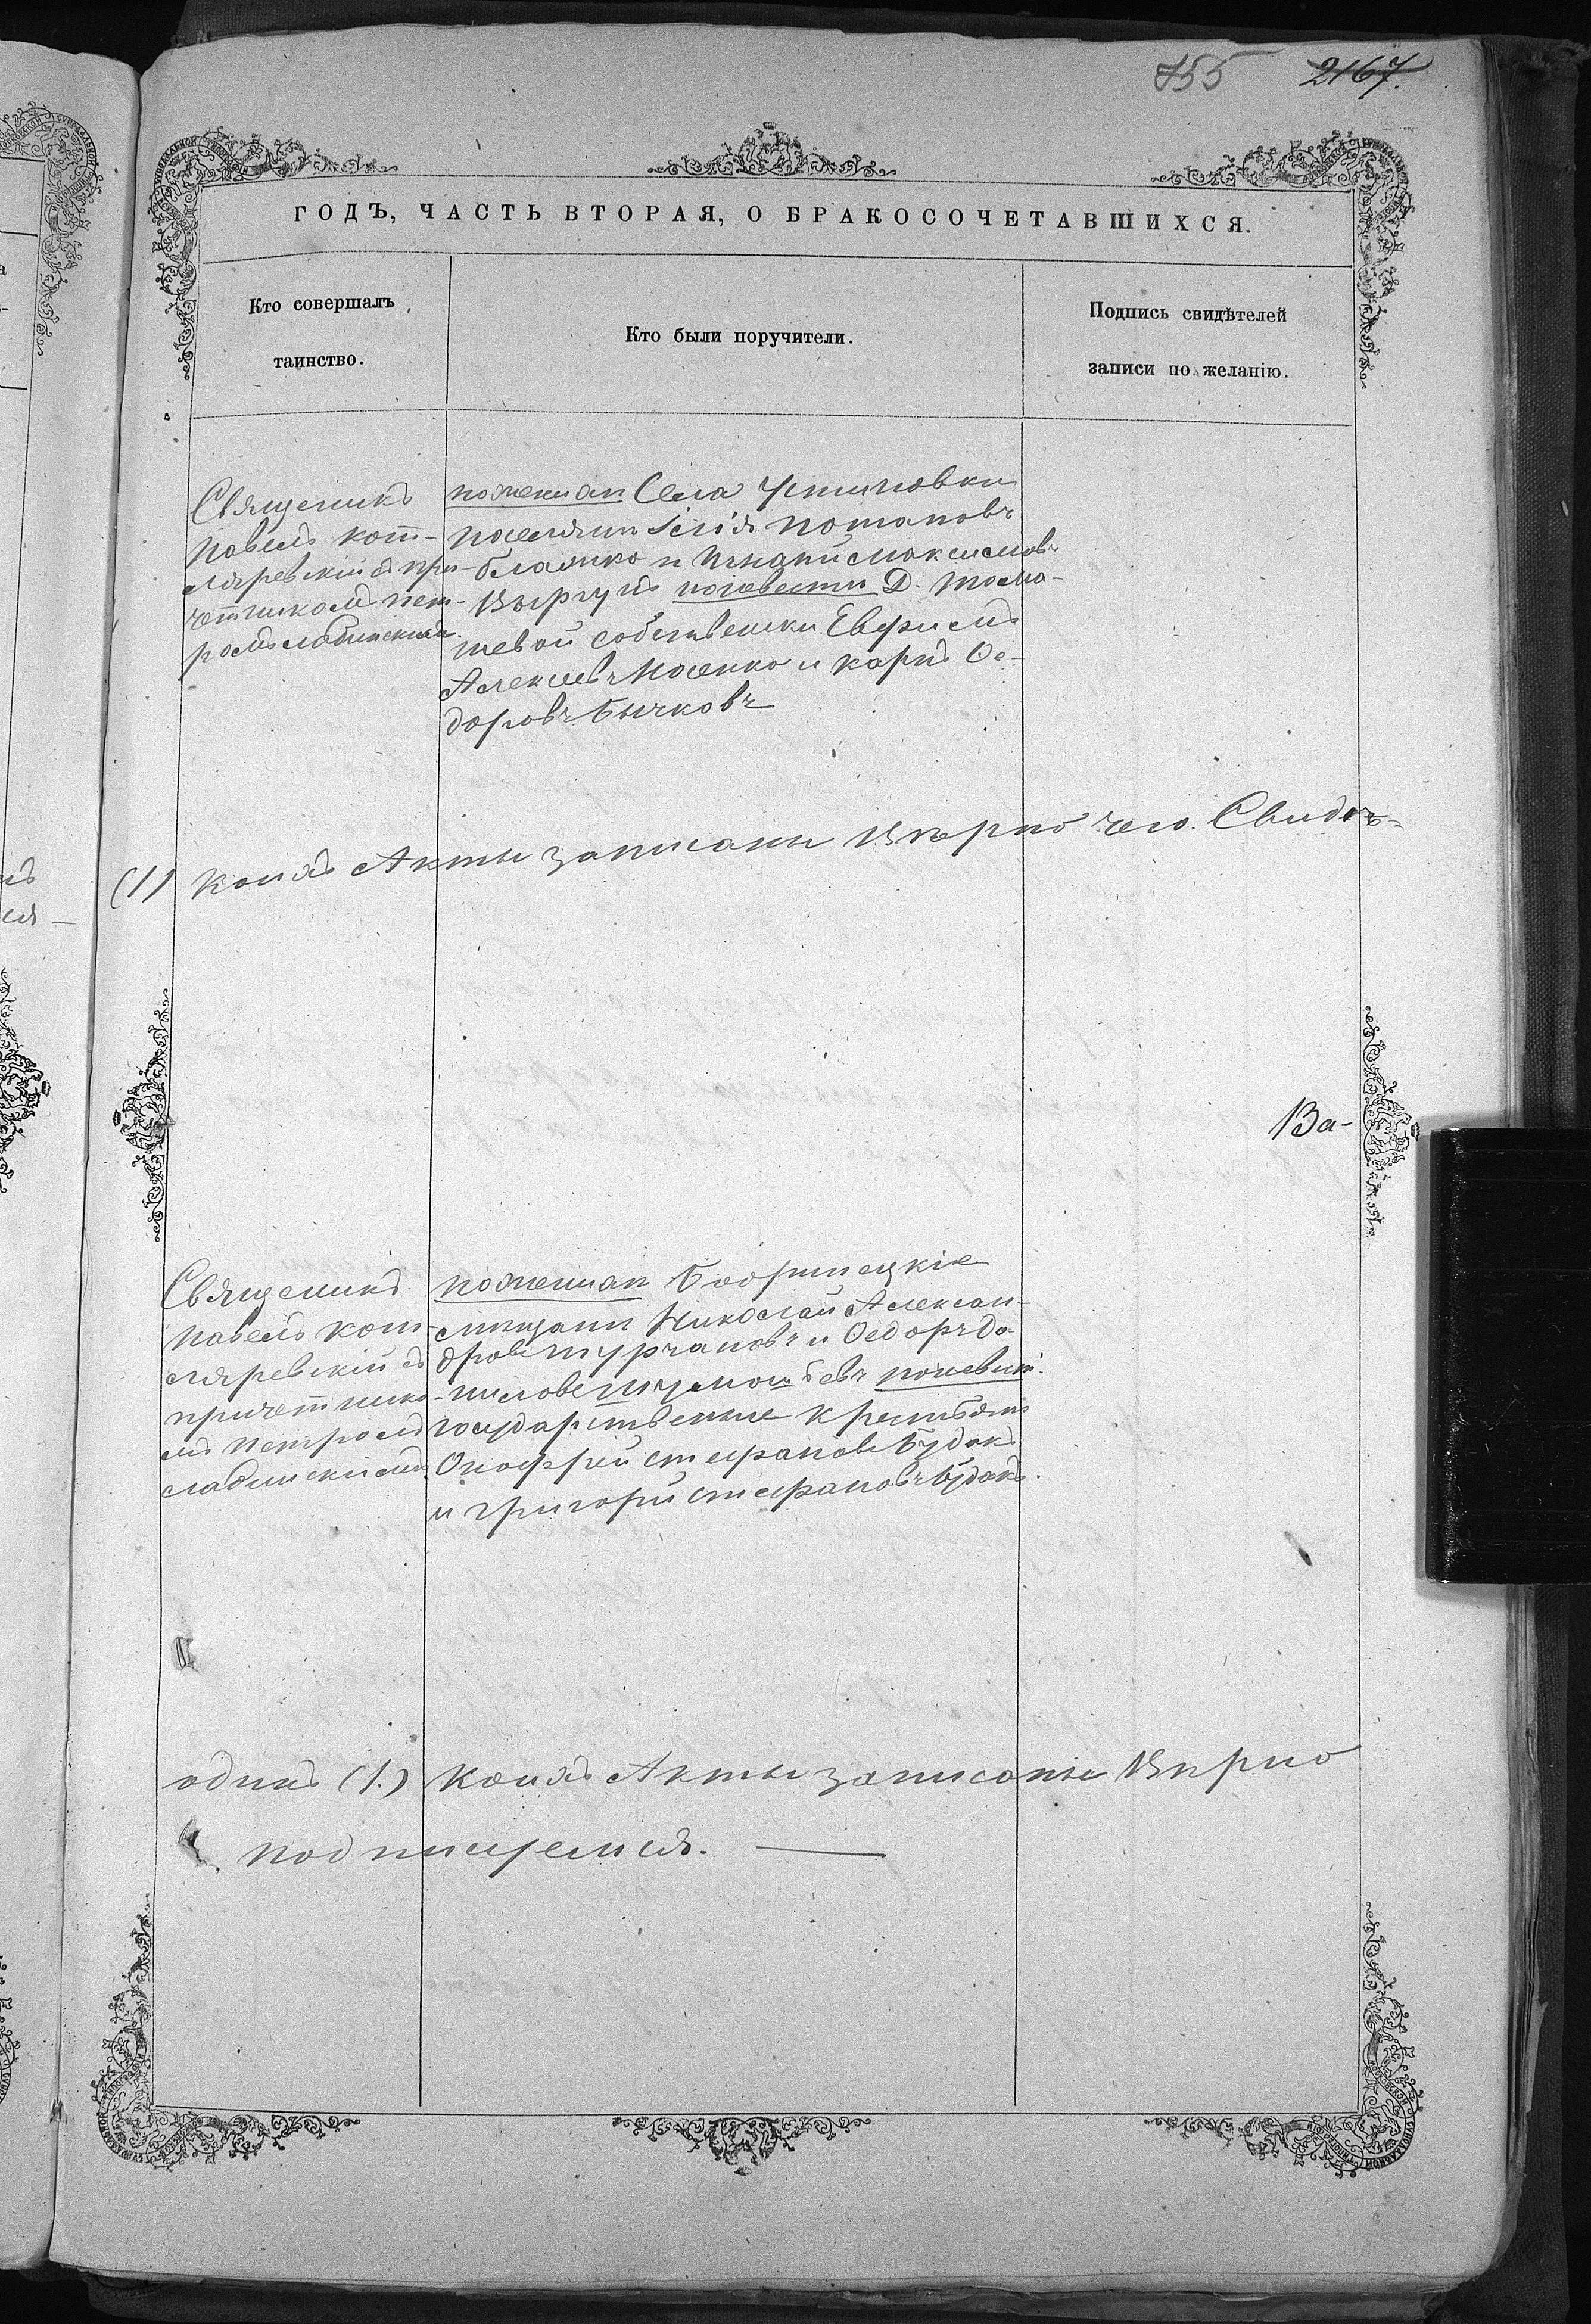 755 2167.
ГОДЪ, ЧАСТЬ ВТОРАЯ, О БРАКОСОЧЕТАВШИХСЯ.
Кто совершалъ
таинство.
Кто были поручители.
Подпись свидѣтелей
записи по желанію.
Священикъ
Павелъ Кот-
ляревскій съ при-
четникомъ Пет-
ромъ Слабинскимъ.
по женихи Села Устиновки
поселяни Ілія Потаповъ
и Максимовъ
по невести Д. Тома-
шевой собственики Ефимъ
Алексеевъ Мосенко и Карпъ Ѳе-
доровъ Бычковъ
(1) коихъ Акты записаны Вѣрно чего Свидѣ-
Ва-
Священикъ
Павелъ Кот-
ляревскій съ
причетнико-
мъ Петромъ
Слабинскимъ
по женихи Бобринецкіе
мищани Николай Алексан-
дровъ Турчановъ и Ѳедоръ Да-
ниловъ по невѣсти
государственые крестьяни
Онофрей Стефановъ Будакъ
и Григорій Стефановъ Будакъ.
одинъ (1.) коихъ Акты записаны Вѣрно
подписуемся.